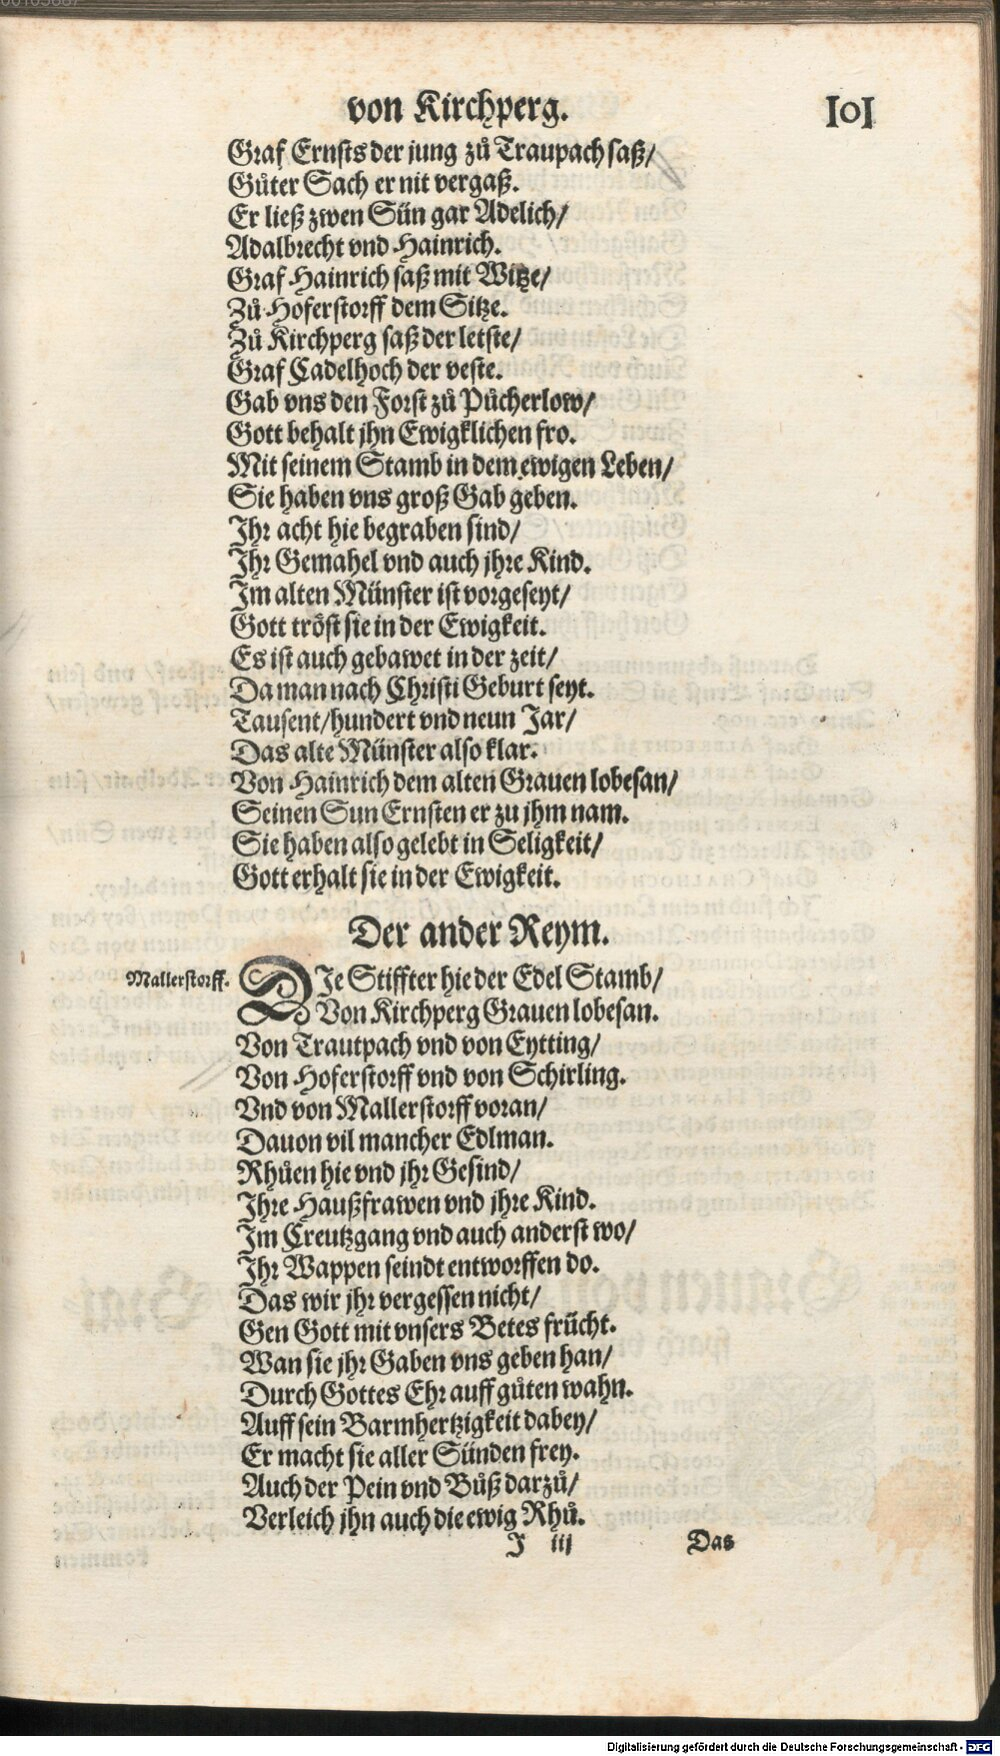 von Kirchperg. 101
Graf Ernsts der jung zů Traupach saß/
Gůter Sach er nit vergaß.
Er ließ zwen Sün gar Adelich/
Adalbrecht vnd Hainrich.
Graf Hainrich saß mit Witze/
Zů Hoferstorff dem Sitze.
Zů Kirchperg saß der letste/
Graf Cadelhoch der veste.
Gab vns den Forst zů Půcherlow/
Gott behalt jhn Ewigklichen fro.
Mit seinem Stamb in dem ewigen Leben/
Sie haben vns groß Gab geben.
Ihr acht hie begraben sind/
Ihr Gemahel vnd auch jhre Kind.
Im alten Münster ist vorgeseyt/
Gott tröst sie in der Ewigkeit.
Es ist auch gebawet in der zeit/
Da man nach Christi Geburt seyt.
Tausent/hundert vnd neun Jar/
Das alte Münster also klar.
Von Hainrich dem alten Grauen lobesan/
Seinen Sun Ernsten er zu jhm nam.
Sie haben also gelebt in Seligkeit/
Gott erhalt sie in der Ewigkeit.
Der ander Reym.
Mallerstorff. DIe Stiffter hie der Edel Stamb/
Von Kirchperg Grauen lobesan.
Von Trautpach vnd von Eytting/
Von Hoferstorff vnd von Schirling.
Vnd von Mallerstorff voran/
Dauon vil mancher Edlman.
Rhůen hie vnd jhr Gesind/
Ihre Haußfrawen vnd jhre Kind.
Im Creutzgang vnd auch anderst wo/
Ihr Wappen seindt entworffen do.
Das wir jhr vergessen nicht/
Gen Gott mit vnsers Betes frücht.
Wan sie jhr Gaben vns geben han/
Durch Gottes Ehr auff gůten wahn.
Auff sein Barmhertzigkeit dabey/
Er macht sie aller Sünden frey.
Auch der Pein vnd Bůß darzů/
Verleich jhn auch die ewig Rhů.
I iii Das
Digitalisierung gefördert durch die Deutsche Forschungsgemeinschaft - DFG